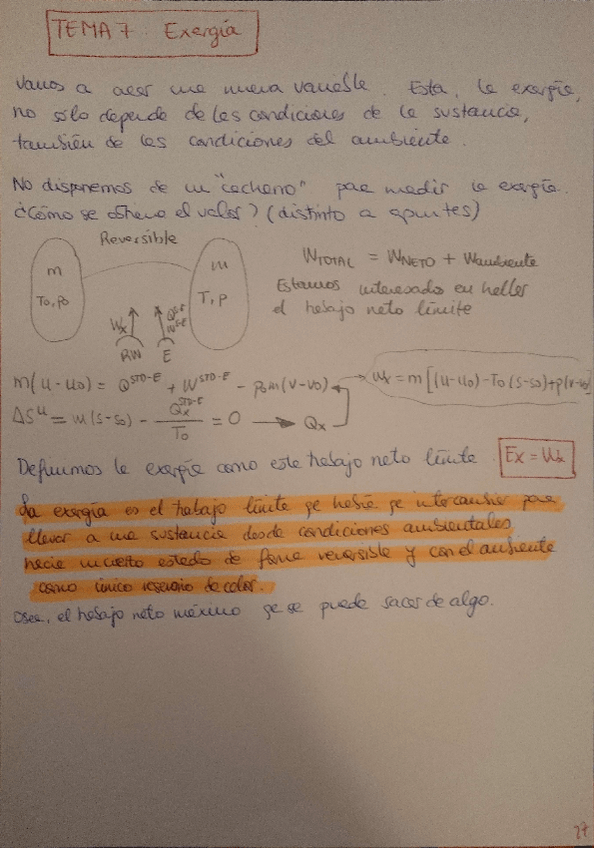 TEMA 7 Exergía
Vamos a crear una nueva variable. Esta, la exergía,
no sólo depende de las condiciones de la sustancia,
también de las condiciones del ambiente.
No disponemos de un "cacharro" para medir la exergía.
¿Cómo se obtiene el valor? (distinto a apuntes)
Reversible
m
To, po
m
T, p
Wx
RW
E
WTOTAL = WNETO + Wambiente
Estamos interesados en hallar
el trabajo neto límite
m(u-uo) = Q^STD-E + W^STD-E - pom(v-vo)
Wx = m[(u-uo)-To(s-so)+p(v-vo)]
ΔS^u = m(s-so) - Qx^STD-E/To = 0 → Qx
Definimos la exergía como este trabajo neto límite.
Ex = Wx
La exergía es el trabajo límite qe habría qe intercambiar para
llevar a una sustancia desde condiciones ambientales
hacia un cierto estado de forma reversible y con el ambiente
como único reservorio de calor.
Osea, el trabajo neto máximo qe se puede sacar de algo.
27